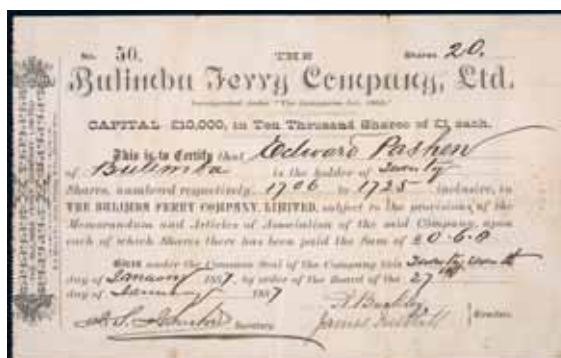 No. 50. THE Shares 20.
Bulimba Ferry Company, Ltd.
Incorporated under "The Companies Act, 1863."
CAPITAL £10,000, in Ten Thousand Shares of £1 each.
This is to Certify that Edward Pashen
of Bulimba is the holder of Twenty
Shares, numbered respectively, 1706 to 1725 inclusive, in
THE BULIMBA FERRY COMPANY, LIMITED, subject to the provisions of the
Memorandum and Articles of Association of the said Company, upon
each of which Shares there has been paid the Sum of £0-6-0
Given under the Common Seal of the Company this Twenty seventh
day of January 1887 by order of the Board of the 27th
day of January 1887
Secretary.
James